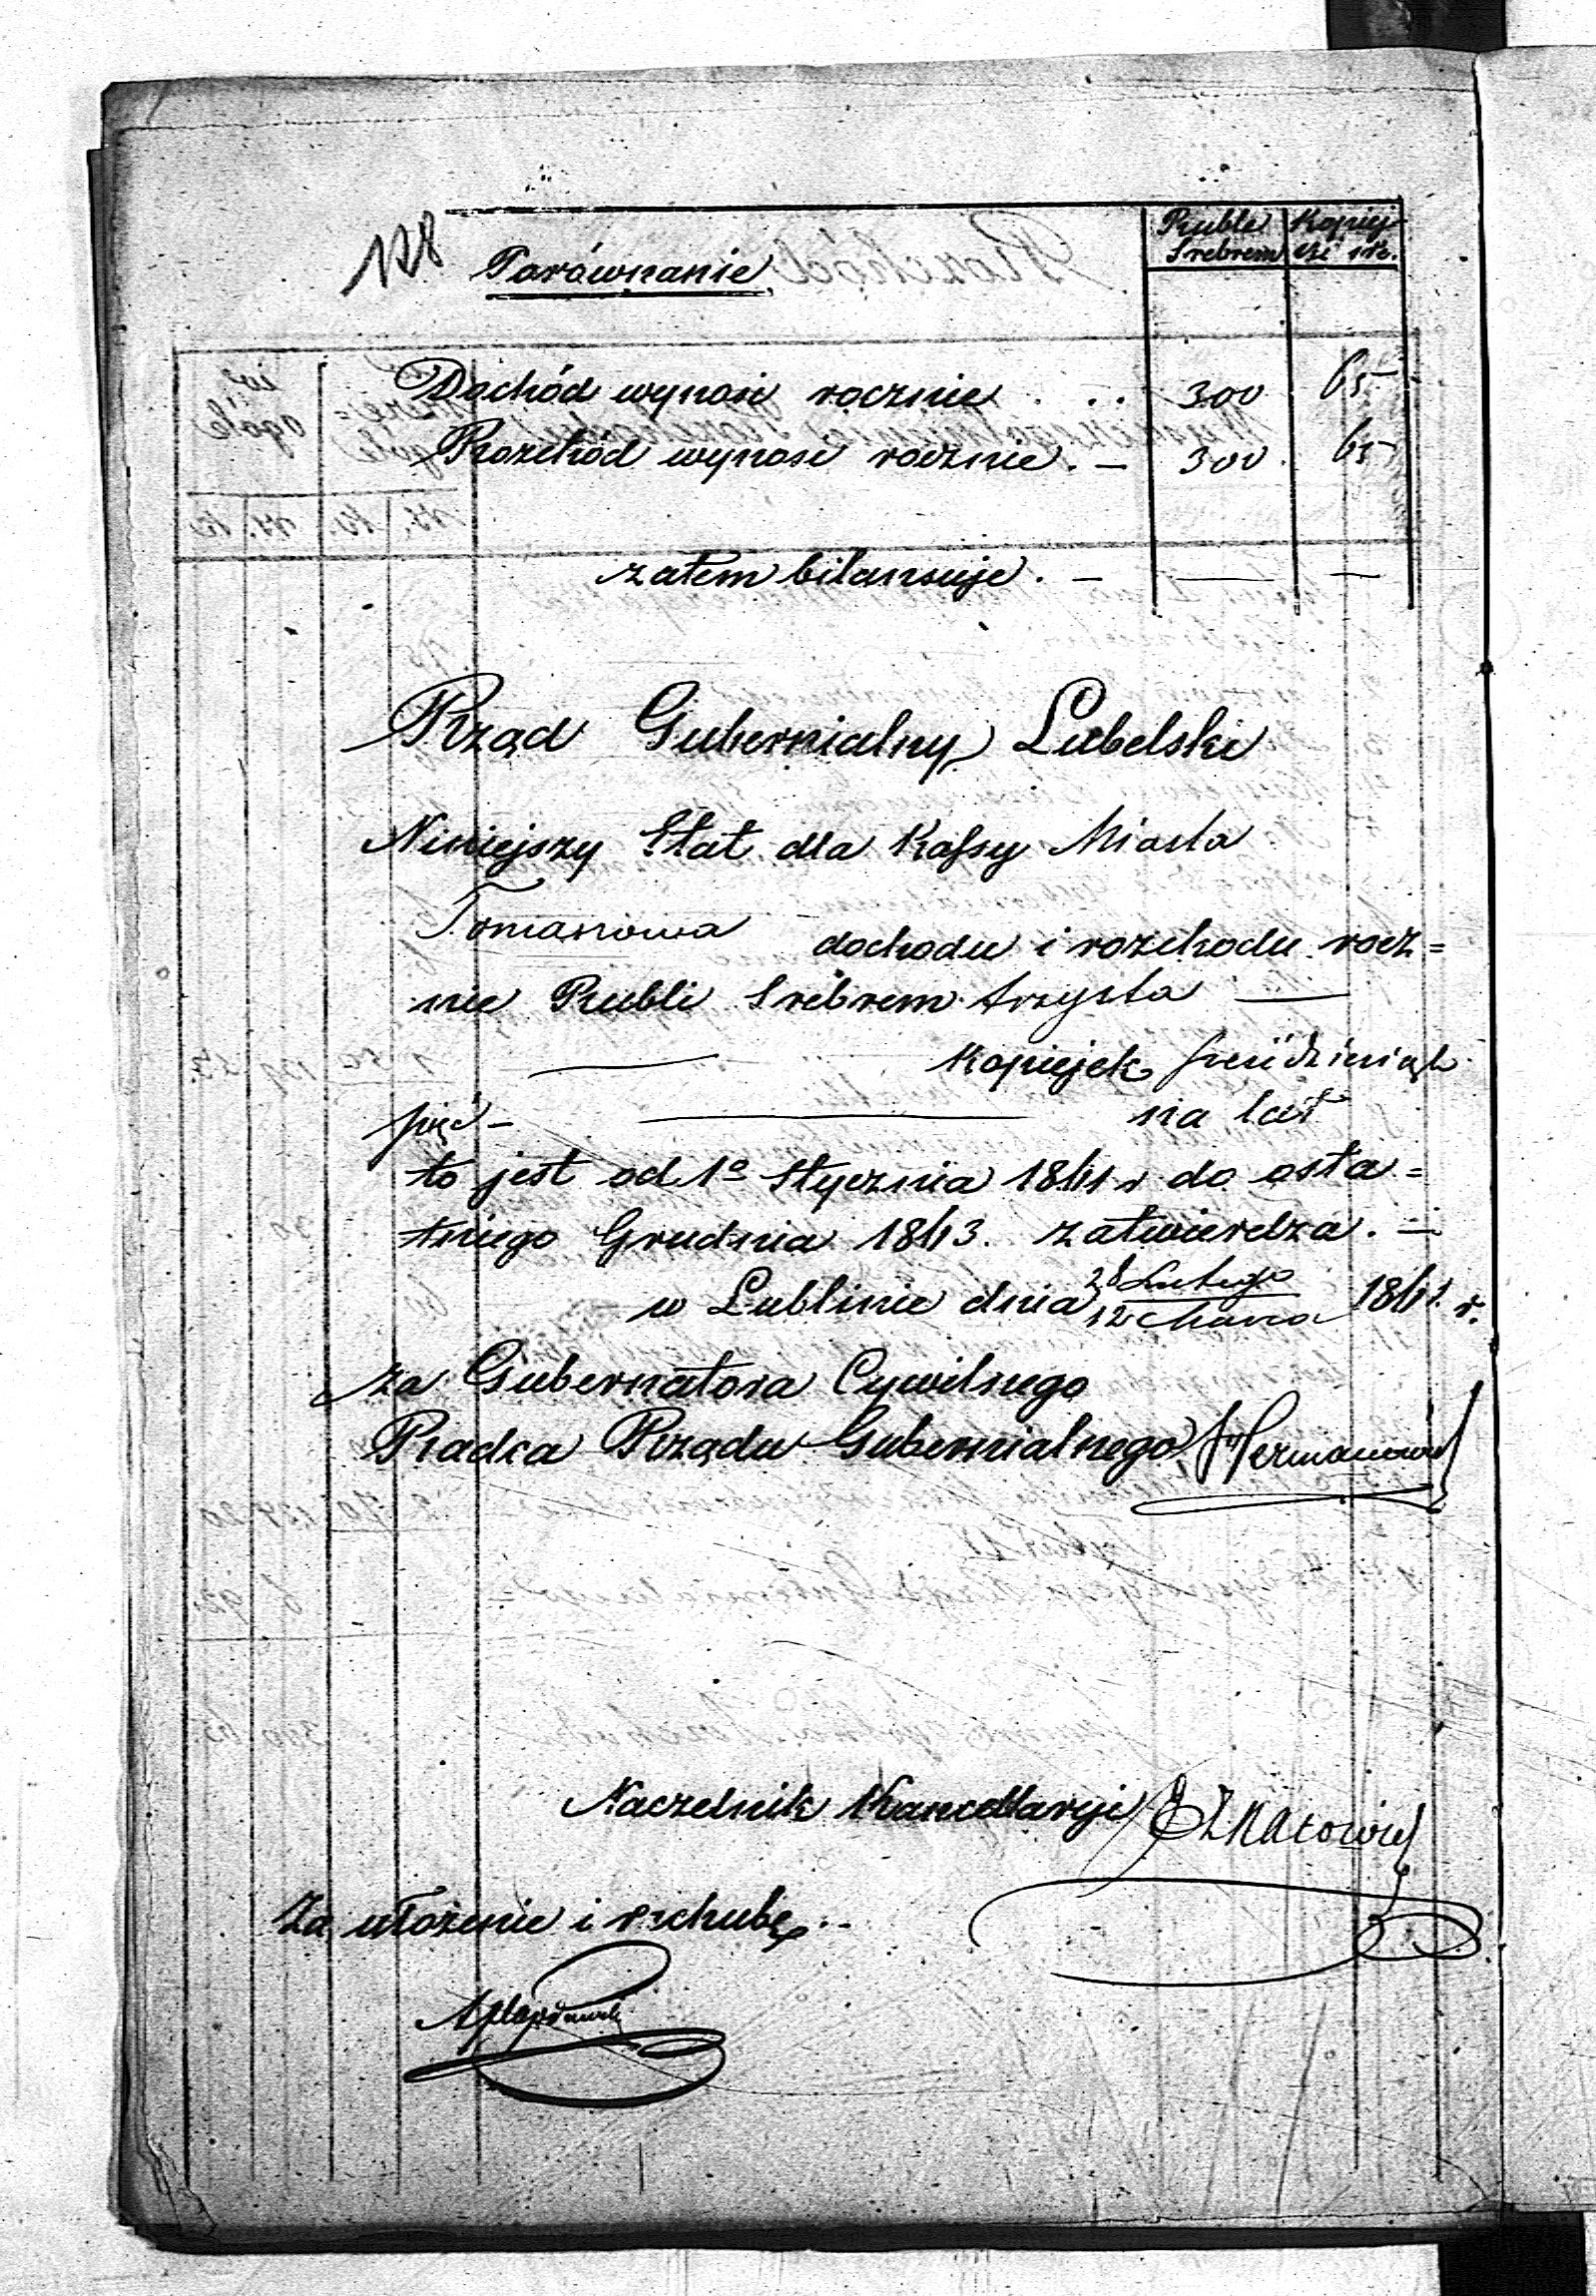 128
Porównanie
Ruble Srebrem
Kopiej
Dochód wynosi rocznie . . . 300 65
Rozchód wynosi rocznie . — 300 . 65
zatem bilansuje . — — —
Rząd Gubernialny Lubelski
Niniejszy Etat dla Kassy Miasta
dochodu i rozchodu rocz=
nie Rubli Srebrem trzysta —
— Kopiejek sześćdziesiąt
pięć — — na lat
to jest od 1o Stycznia 1861 r do osta=
tniego Grudnia 1863. zatwierdza . —
w Lublinie dnia 28 Lutego / 12 Marca 1861 r.
za Gubernatora Cywilnego
Radca Rządu Gubernialnego
Naczelnik Kancellaryi
Za ułożenie i rachubę . -